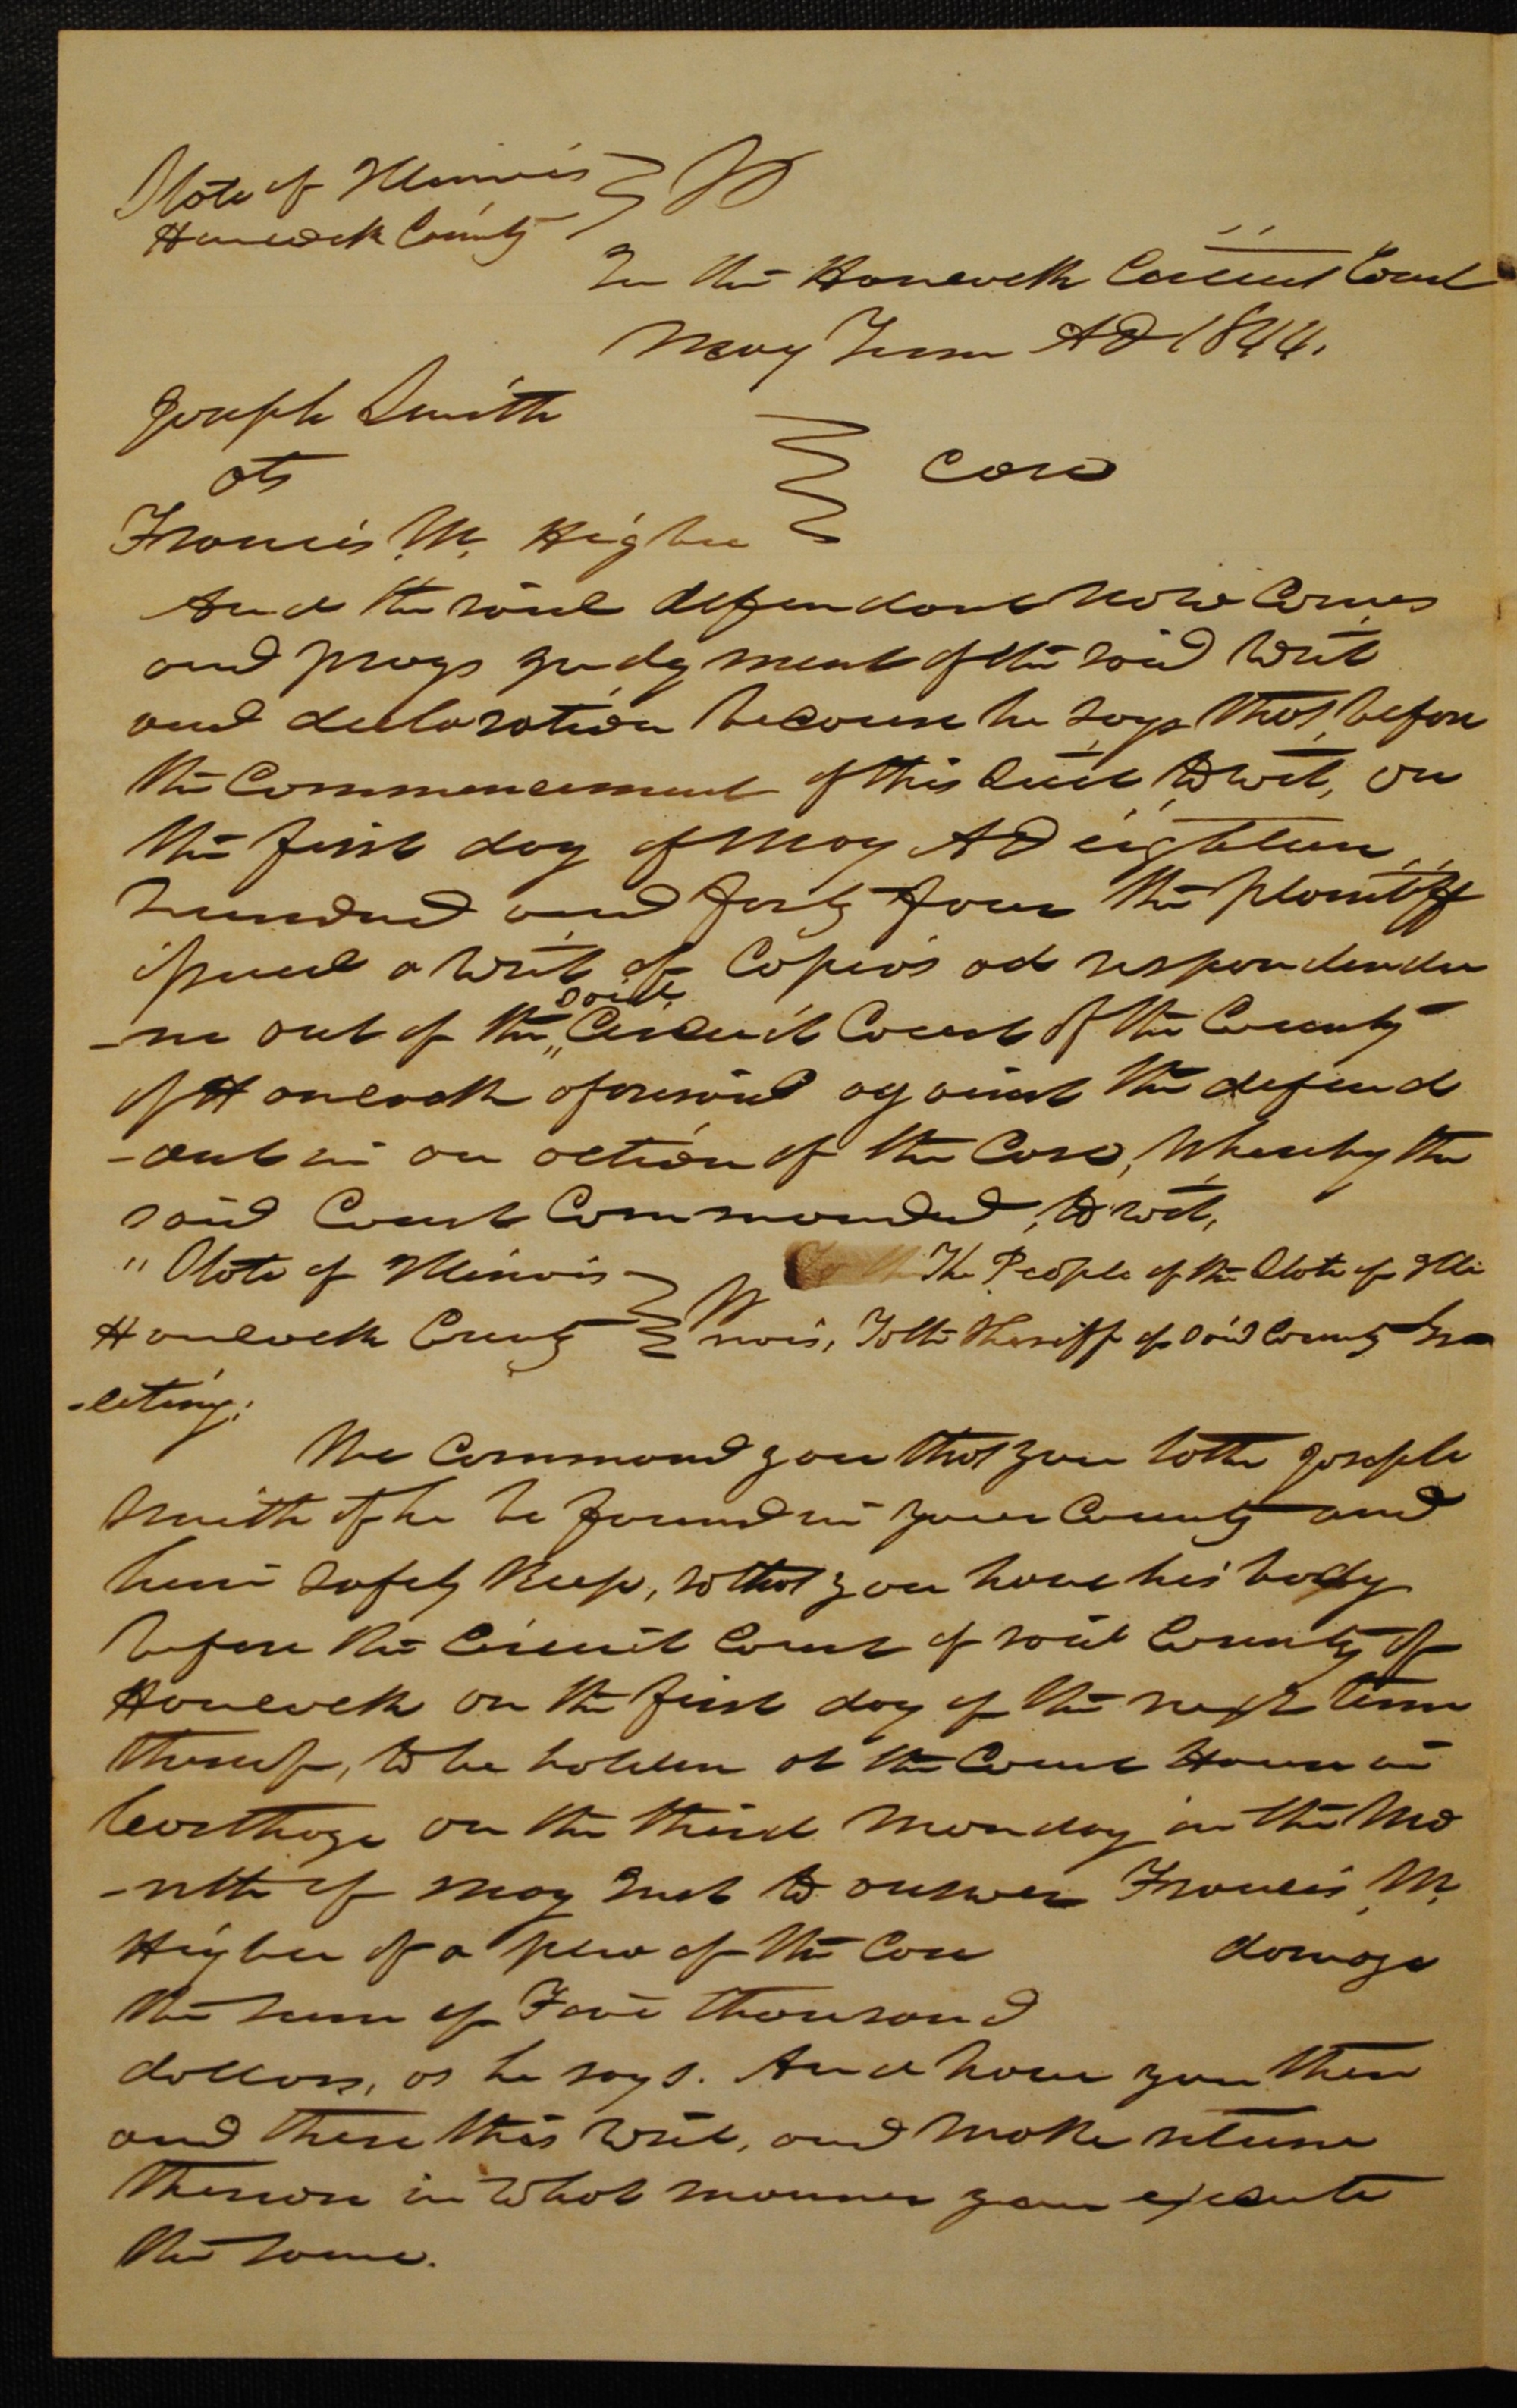 State of Illinois } SS
Hancock County
In the Hancock Circuit Court
May Term AD 1844.
Joseph Smith
ats } Case
Francis M. Higbee
And the said defendant now comes
and prays judgment of the said writ
and declaration because he says that, before
the Commencement of this Suit, towit, on
the first day of May AD eighteen
hundred and forty four the plaintiff
issued a writ of Capias ad respondendu
-m out of the said Circuit Court of the County
of Hancock aforesaid against the defend
-ant in an action of the Case, Whereby the
said Court Commanded, to wit,
"State of Illinois } SS The People of the State of Illi
Hancock County nois, To the Sheriff of said County Gre
-eting:
We Command you that you take Joseph
Smith if he be found in your County and
him safely Keep, so that you have his body
before the Circuit Court of said County of
Hancock on the first day of the next term
thereof, to be holden at the Court House in
Carthage on the third Monday in the Mo
-nth of May Inst to answer Francis M.
Higbee of a plea of the Case damage
the sum of Five thousand
dollars, as he says. And have you then
and there this writ, and make return
thereon in what manner you execute
the same.